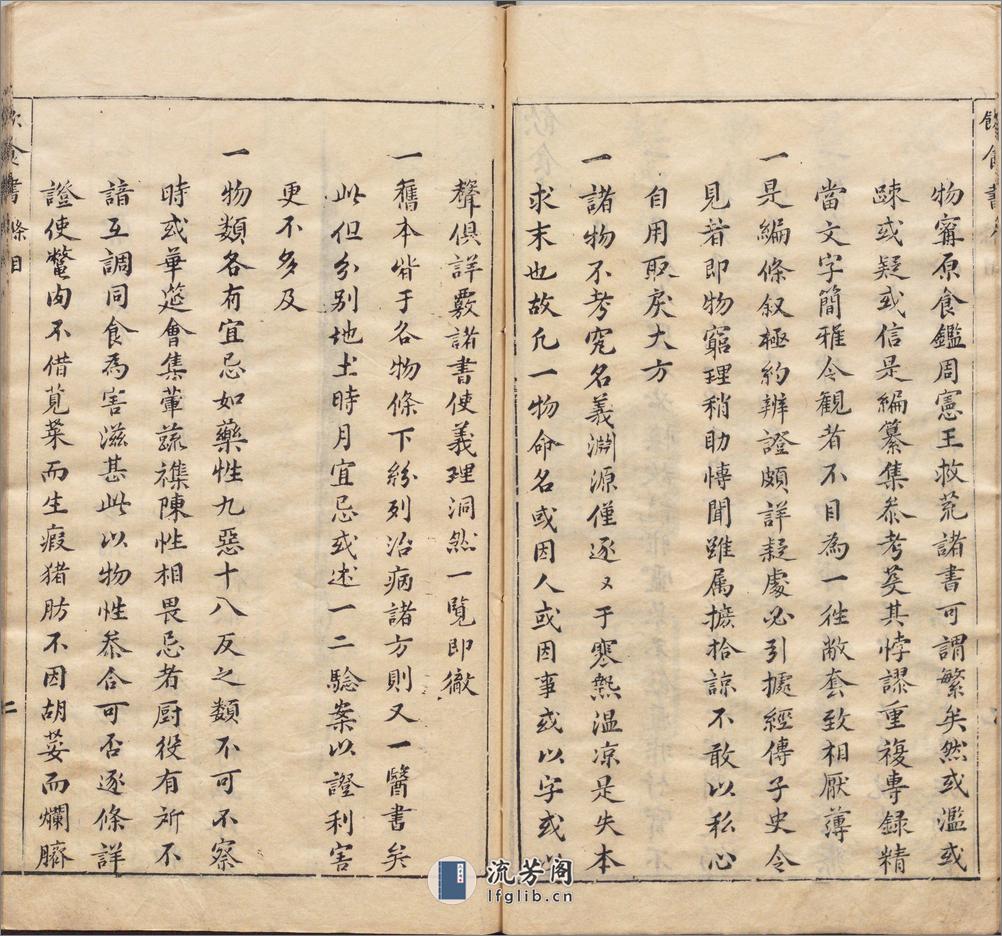 物甯原食鑑周憲王救荒諸書可謂繁矣然或濫或
踈或疑或信是編纂集叅考芟其悖謬重複專録精
當文字簡雅令觀者不目為一徃敝套致相厭薄
一是編條叙極約辨證頗詳疑處必引據經傳子史令
見者即物窮理稍助愽聞雖属摭拾諒不敢以私心
自用取戾大方
一諸物不考究名義淵源僅逐々于寒熱温凉是失本
求末也故凢一物命名或因人或因事或以字或以
聲俱詳覈諸書使義理洞然一覧即徹
一舊本皆于各物條下紛列治病諸方則又一醫書矣
此但分别地土時月宜忌或述一二驗案以證利害
更不多及
一物類各有宜忌如藥性九惡十八反之類不可不察
時或華筵會集葷蔬襍陳性相畏忌者厨役有所不
諳互調同食為害滋甚此以物性叅合可否逐條詳
證使鼈肉不借莧菜而生瘕猪肪不因胡荽而爛臍
飲食書
飲食書 條目
二
流芳阁
lfglib.cn